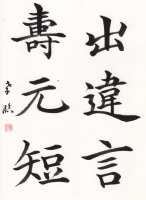 出違言
壽元短